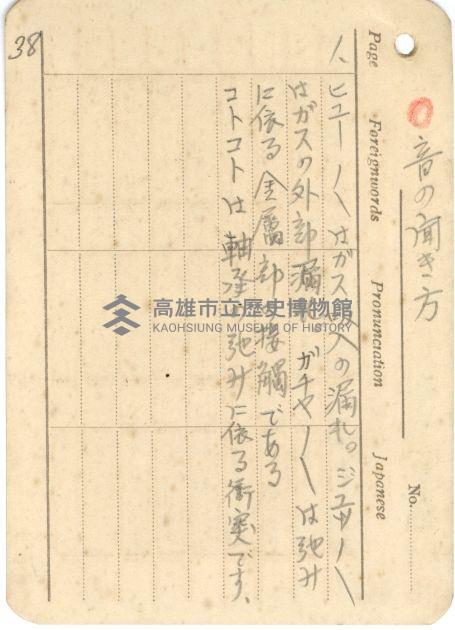 音の聞き方
No.
Page Foreignwords Pronunciation Japanese
1. ヒュー〳〵はガス吸入の漏れ。ジュッ〳〵
はガスの外部漏れ ガチャ〳〵は弛み
に依る金属部の接触である
コトコトは軸承の弛みに依る衝突です、
38
高雄市立歷史博物館
KAOHSIUNG MUSEUM OF HISTORY